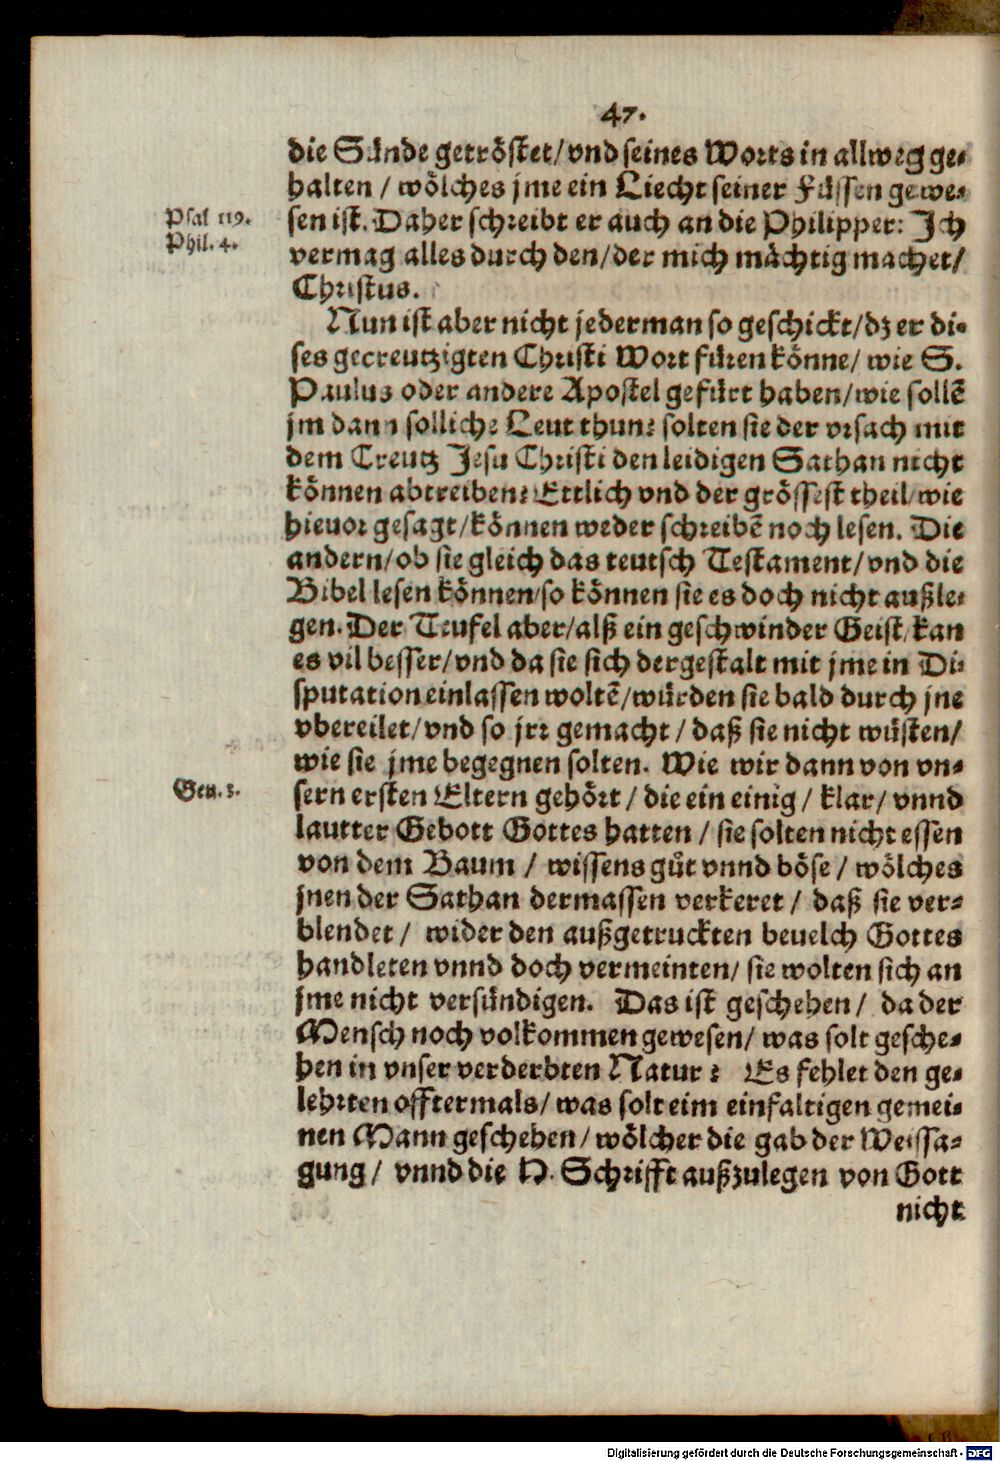 47.
die Sünde getröstet/vnd seines Worts in allweg ge-
halten / wölches jme ein Liecht seiner Füssen gewe-
Psal 119.
sen ist. Daher schreibt er auch an die Philipper: Ich
Phil. 4.
vermag alles durch den/der mich mächtig machet/
Christus.
Nun ist aber nicht jederman so geschickt/dz er di-
ses gecreutzigten Christi Wort füren könne/ wie S.
Paulus oder andere Apostel gefürt haben/wie sollē
jm dann solliche Leut thun? solten sie der vrsach mit
dem Creutz Jesu Christi den leidigen Sathan nicht
können abtreiben? Ettlich vnd der grössest theil/wie
hieuor gesagt/können weder schreibē noch lesen. Die
andern/ob sie gleich das teutsch Testament/vnd die
Bibel lesen können/so können sie es doch nicht außle-
gen. Der Teufel aber/alß ein geschwinder Geist/kan
es vil besser/vnd da sie sich dergestalt mit jme in Di-
sputation einlassen woltē/würden sie bald durch jne
vbereilet/vnd so jrr gemacht / daß sie nicht wüsten/
wie sie jme begegnen solten. Wie wir dann von vn-
Gen. 3.
sern ersten Eltern gehört / die ein einig / klar/ vnnd
lautter Gebott Gottes hatten / sie solten nicht essen
von dem Baum / wissens gůt vnnd böse / wölches
jnen der Sathan dermassen verkeret / daß sie ver-
blendet / wider den außgetruckten beuelch Gottes
handleten vnnd doch vermeinten/ sie wolten sich an
jme nicht versündigen. Das ist geschehen / da der
Mensch noch volkommen gewesen/ was solt gesche-
hen in vnser verderbten Natur? Es fehlet den ge-
lehrten offtermals/ was solt eim einfaltigen gemei-
nen Mann geschehen/ wölcher die gab der Weissa-
gung / vnnd die H. Schrifft außzulegen von Gott
nicht
Digitalisierung gefördert durch die Deutsche Forschungsgemeinschaft - DFG